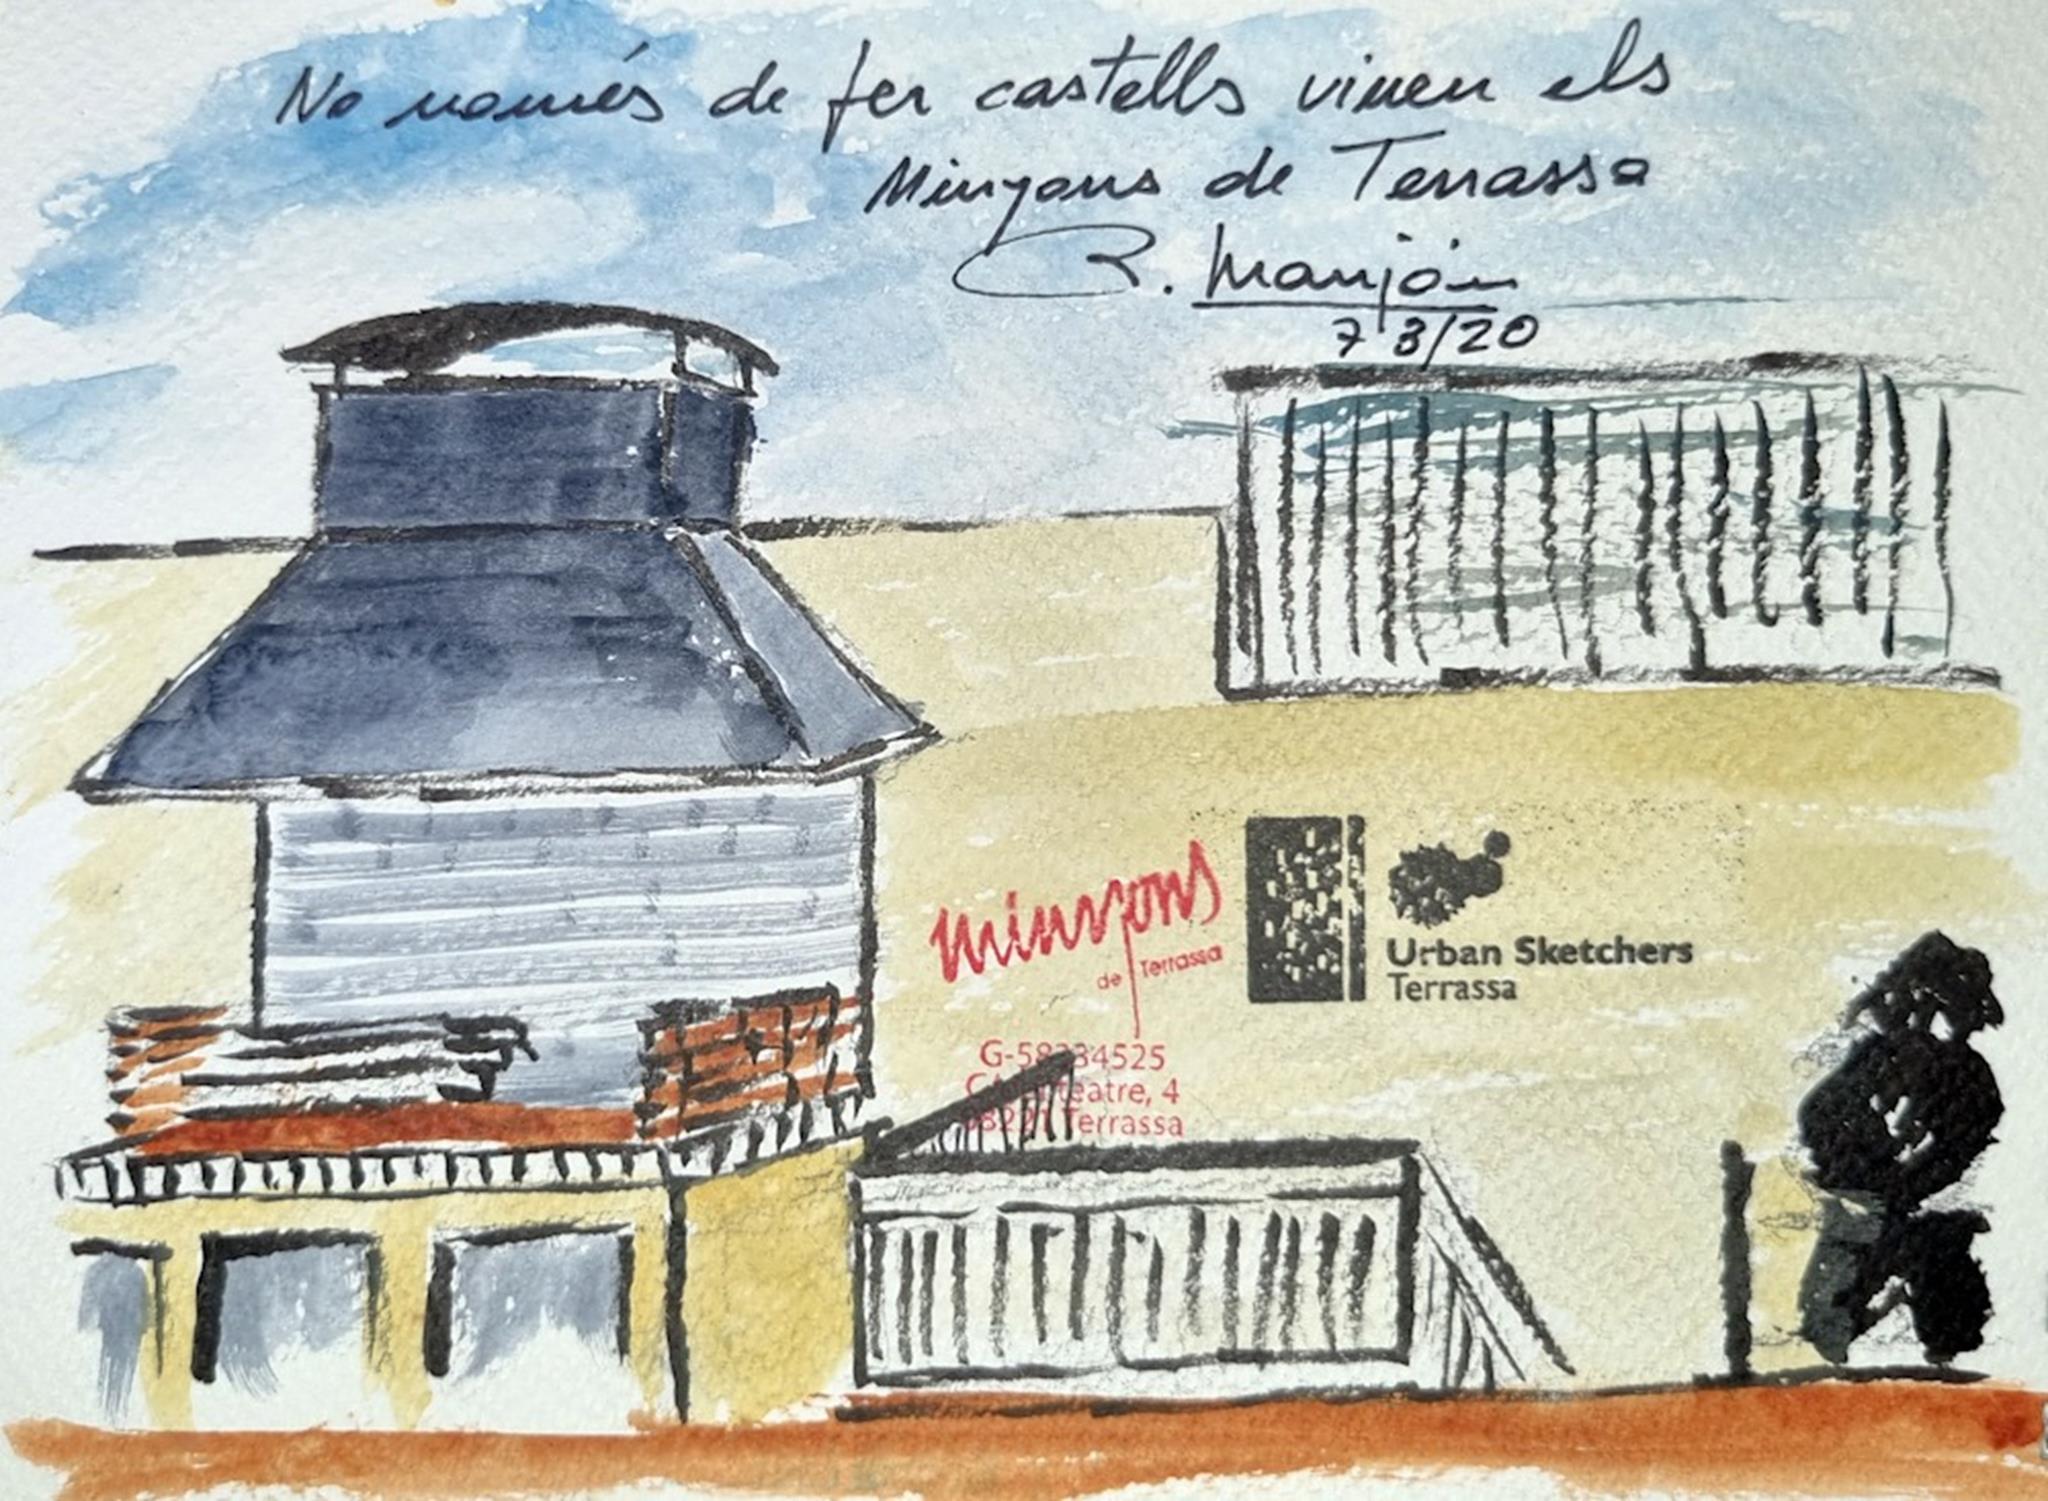 No només de fer castells viuen els
Minyons de Terrassa
R. Manjón
7 3/20
minyons
de Terrassa
Urban Sketchers
Terrassa
G-58234525
teatre, 4
08221 Terrassa